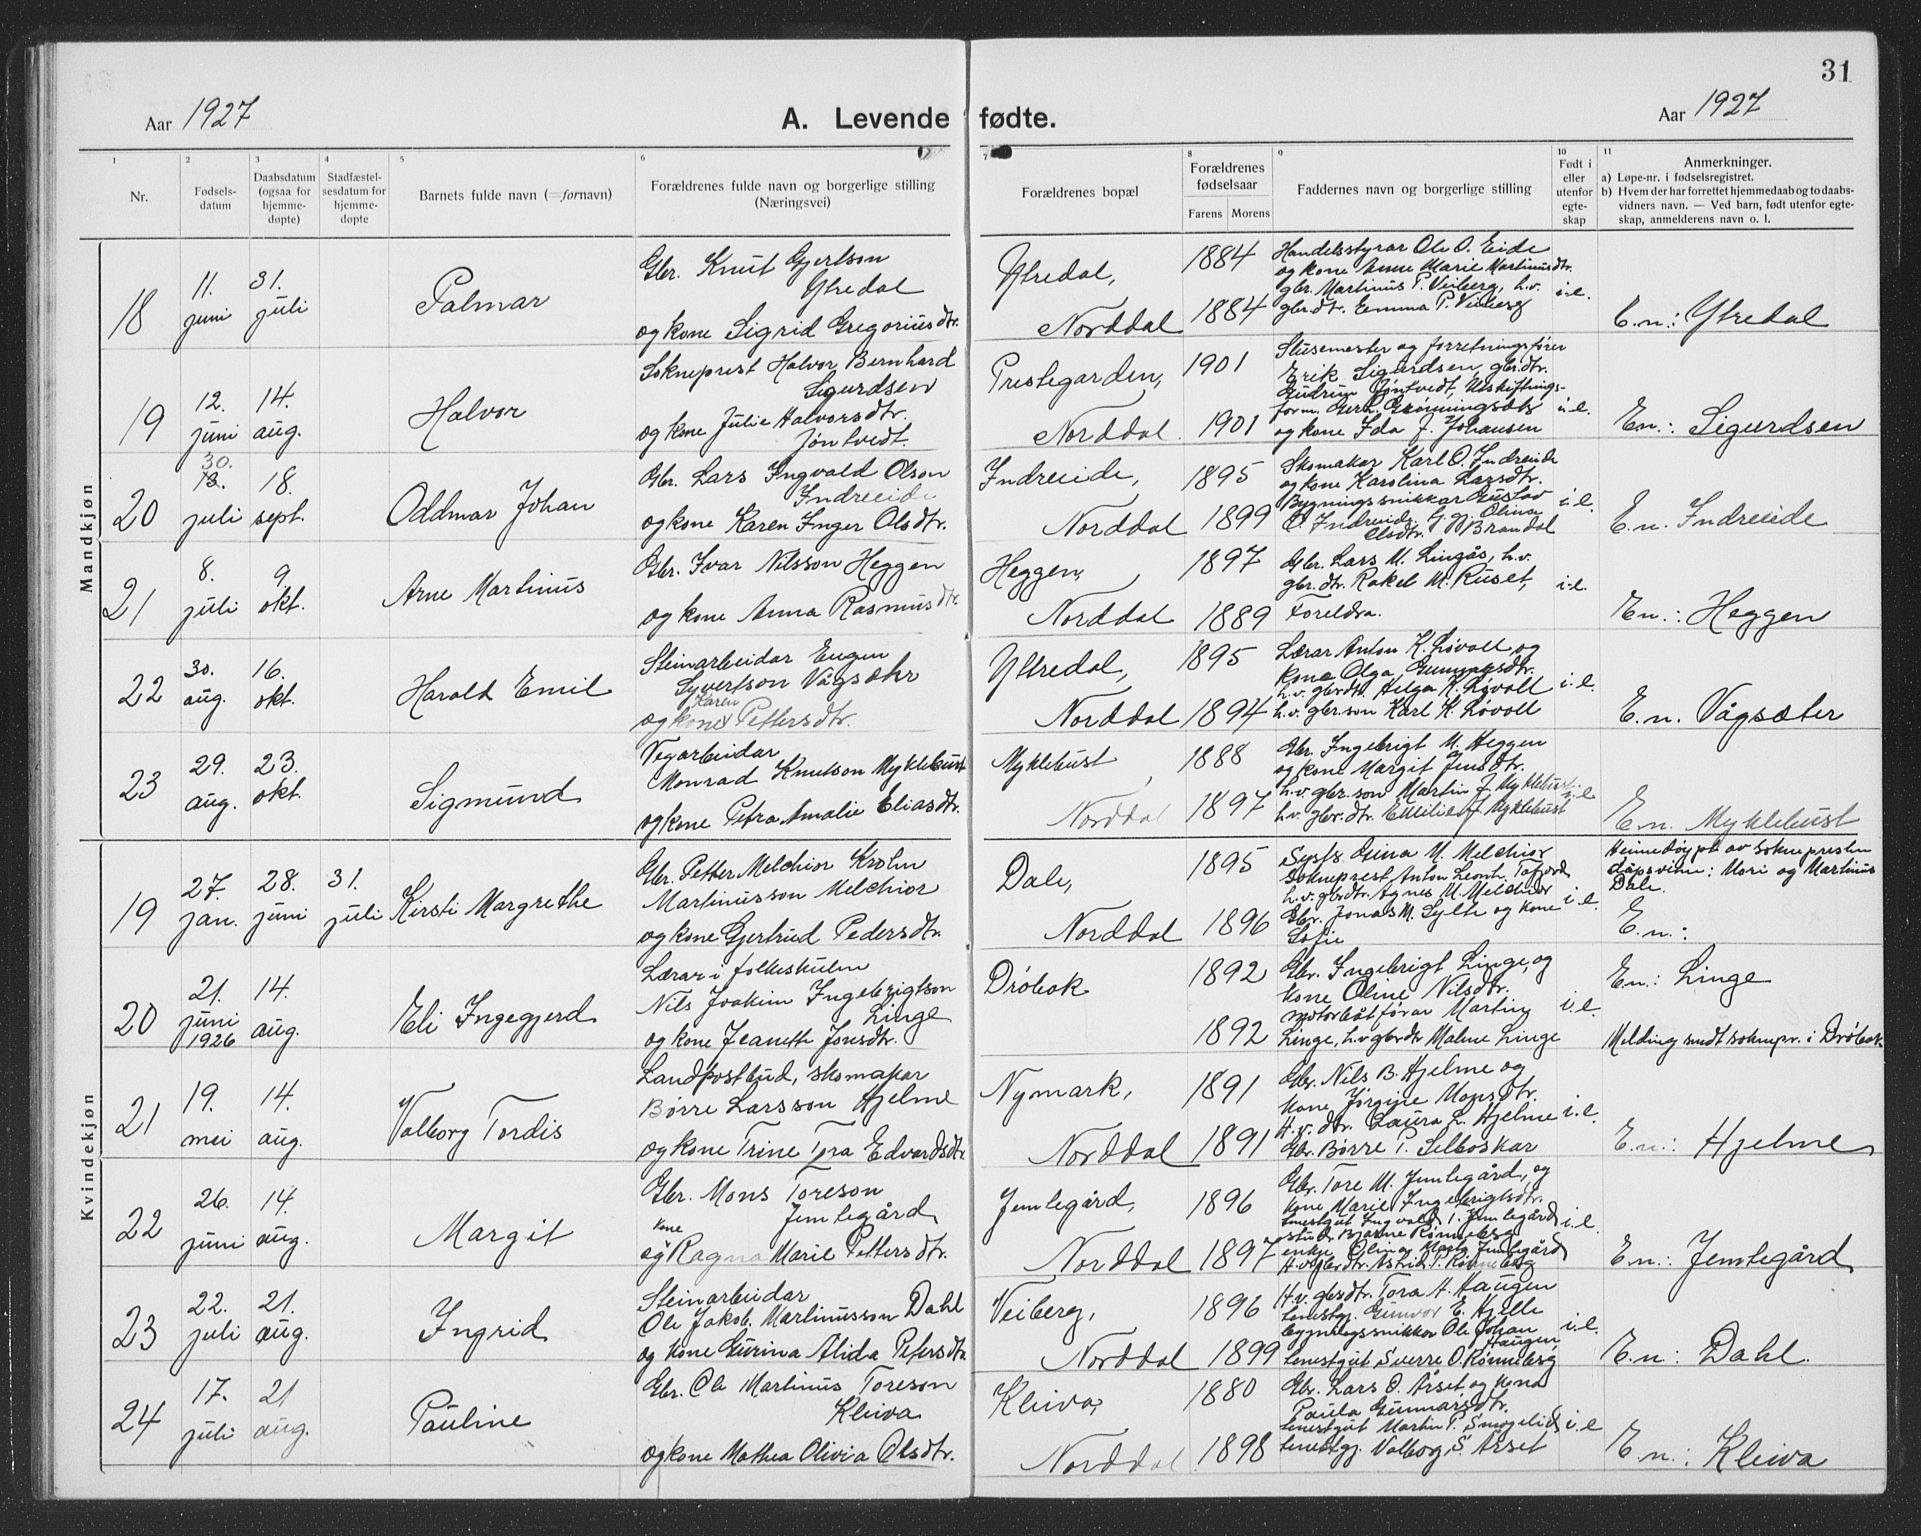 31
Aar 1927
A. Levende fødte.
Aar 1927
1
2
3
4
5
6
7
8
9
10
11
Nr.
Fødsels-
datum
Daabsdatum
(ogsaa for
hjemme-
døpte)
Stadfæstel-
sesdatum for
hjemme-
døpte
Barnets fulde navn (=fornavn)
Forældrenes fulde navn og borgerlige stilling
(Næringsvei)
Forældrenes bopæl
Forældrenes
fødselsaar
Farens
Morens
Faddernes navn og borgerlige stilling
Født i
eller
utenfor
egte-
skap
Anmerkninger.
a) Løpe-nr. i fødselsregistret.
b) Hvem der har forrettet hjemmedaab og to daabs-
vidners navn. — Ved barn, født utenfor egte-
skap, anmelderens navn o. l.
Mandkjøn
18
11.
juni
31.
juli
Palmar
Gbr. Knut Gjertson
Ytredal
og kone Sigrid Gregoriusdtr.
Ytredal,
Norddal
1884
1884
Handelsstyrar Ole O. Eide
og kone Anne Marie Martinusdtr.
gbr. Martinus P. Veiberg, h.v.
gbr.dtr. Emma P. Veiberg
i.e.
E.n.: Ytredal
19
12.
juni
14.
aug.
Halvor
Sokneprest Halvor Bernhard
Sigurdsen
og kone Julie Halvorsdtr.
Jøntvedt
Prestegarden,
Norddal.
1901
1901
Slusemester og forretningsfører
Erik Sigurdsen, gbr.dtr.
Gudrun Jøntvedt, Utskiftnings-
form. Gerh. Grønningsæts
og kone Ida J. Johansen
i.e.
E.n.: Sigurdsen
20
30.
13.
juli
18.
sept.
Oddmar Johan
Gbr. Lars Ingvald Olson
Indreeide
og kone Karen Inger Olsdtr.
Indreeide,
Norddal
1895
1899
Skomakar Karl O. Indreeide
og kone Karolina Larsdtr.
Bygningssnikkar Gustav
O. Indreeide, G. gj. Olina
Olsdtr. Brandal
i.e.
E.n. Indreeide
21
8.
juli
9.
okt.
Arne Martinus
Gbr. Ivar Nilsson Heggen
og kone Anna Rasmusdtr.
Heggen,
Norddal
1897
1889
Gbr. Lars M. Lingås, h.v.
gbr.dtr. Rakel M. Ruset,
Foreldra.
i.e.
E.n.: Heggen
22
30.
aug.
16.
okt.
Harald Emil
Steinarbeidar Eugen
Syvertson Vågsæter
Karen
og kone Pettersdtr.
Yttredal,
Norddal
1895
1894
Lærar Anton K. Løvoll og
kone Olga Gunnarsdtr.
h.v. gbrdtr. Helga K. Løvoll
h.v. gbr.son Karl K. Løvoll
i.e.
E.n. Vågsæter
23
29.
aug.
23.
okt.
Sigmund
Vegarbeidar
Monrad Knutson Myklebust
og kone Petra Amalie Eliasdtr.
Myklebust,
Norddal
1888
1897
Gbr. Ingebrigt M. Heggen
og kone Margit Jensdtr.
h.v. gbr.son Martin J. Myklebust
h.v. gbr.dtr. Emilie J. Myklebust
i.e.
E.n. Myklebust
Kvindekjøn
19
27.
jan.
28.
juni
31.
juli
Kirsti Margrethe
Gbr. Petter Melchior Krohn
Martinusson Melchior
og kone Gjertrud Pedersdtr.
Dale,
Norddal
1895
1896
Systr. Gina M. Melchior
Sokneprest Anton Leonh. Tafjord
h.v. gbrdtr. Agnes M. Melchior
Gbr. Jonas M. Sylte og kone
Sofie
i.e.
Heimedøypt av soknepresten
dåpsvitne: Mori og Martinus
Dale.
E.n.:
20
21.
juni
1926
14.
aug.
Eli Ingegjerd
Lærar i folkeskulen
Nils Joakim Ingebrigtson
Linge
og kone Jeanette Jonsdtr.
Drøbak
1892
1892
Gbr. Ingebrigt Linge, og
kone Oline Nilsdtr.
motorbåtførar Martin
Linge, h.v gbrdtr Malene Linge
i.e.
E.n.: Linge
Melding sendt soknepr. i Drøbak
21
19.
mei
14.
aug.
Valborg Tordis
Landpostbud, skomakar
Børre Larsson Hjelme
og kone Trine Tora Edvardsdtr.
Nymark,
Norddal
1891
1891
Gbr. Nils B. Hjelme og
kone Jørgine Monsdtr.
H.v. dtr. Laura L. Hjelme
Gbr. Børre P. Selboskar
i.e.
E.n.: Hjelme
22
26.
juni
14.
aug.
Margit
Gbr. Mons Toreson
Jemtegård
kone
og Ragna Marie Pettersdtr.
Jemtegård,
Norddal
1896
1897
Gbr. Tore M. Jemtegård, og
kone Marie Ingebrigtsdtr.
tenestgut Ingvald T. Jemtegård
stud. Bjarne Rønneberg
enkje Olina Jemtegård
H.v gbrdtr. Astrid P. Rønneberg
i.e.
E.n.: Jemtegård
23
22.
juli
21.
aug.
Ingrid
Steinarbeidar
Ole Jakob Martinusson Dahl
og kone Gurina Alida Petersdtr.
Veiberg,
Norddal
1896
1899
H.v. gbrdtr. Tora A. Haugen
tenestgj. Gunvor E. Hjelle
bygningssnikkar Ole Johan
Haugen
tenestgut Sverre O. Rønneberg
i.e.
E.n: Dahl.
24
17.
juli
21
aug.
Pauline
Gbr. Ole Martinus Toreson
Kleiva
og kone Mathea Olivia Olsdtr.
Kleiva,
Norddal
1880
1898
Gbr. Lars O. Årset og kona
Paula Gunnarsdtr.
tenestgut Martin P. Smogelid
tenestgj. Valborg S. Årset
i.e
E.n.: Kleiva